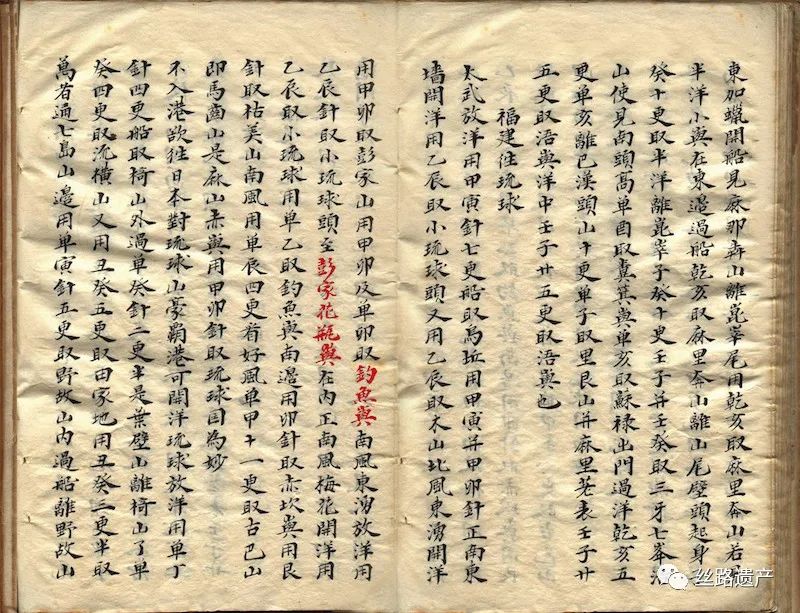 東加蠟開船見麻那犇山離崑峯尾用乾亥取麻里犇山若
半洋小嶼在東邊過船乾亥取麻里犇山離山尾壁頭起身
癸十更取半洋離崑峯子癸十更壬子并壬癸取三牙七峯
山使見南頭高單酉取糞箕嶼單亥取蘇祿出門過洋乾亥五
更單亥離巳漢頭山十更單子取里艮山并麻里荖表壬子廿
五更取浯嶼洋中壬子廿五更取浯嶼也
福建往琉球
太武放洋用甲寅針七更船取烏坵用甲寅并甲卯針正南東
墻開洋用乙辰取小琉球頭又用乙辰取木山北風東湧開洋
用甲卯取彭家山用甲卯及單卯取釣魚嶼南風東湧放洋用
乙辰針取小琉球頭至彭家花瓶嶼在內正南風梅花開洋用
乙辰取小琉球用單乙取釣魚嶼南邊用卯針取赤坎嶼用艮
針取枯美山南風用單辰四更看好風單甲十一更取古巴山
即馬齒山是麻山赤嶼用甲卯針取琉球國為妙
不入港欲往日本對琉球山豪霸港可開洋琉球放洋用單丁
針四更船取椅山外過單癸針二更半是葉壁山離椅山了單
癸四更取流橫山又用丑癸五更取田家地用丑癸三更半取
萬者通七島山邊用單寅針五更取野故山內過船離野故山
丝路遗产